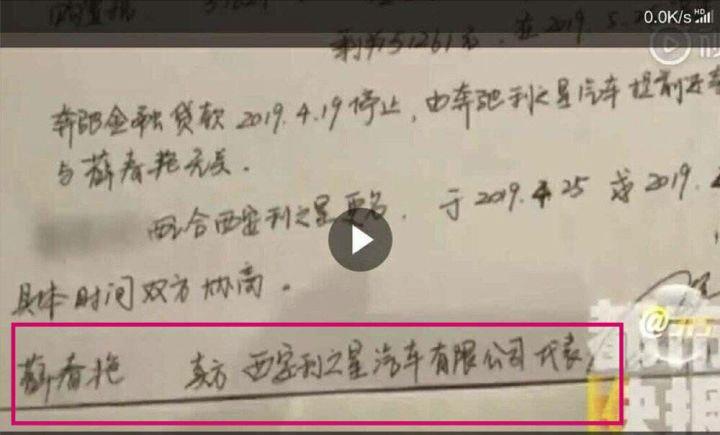 0.0K/s HD
剩余51261元，在2019.5.
奔驰金融贷款2019.4.19停止，由奔驰利之星汽车提前还
与薛春艳无关.
配合西安利之星更名，于2019.4.25或2019.
具体时间双方协商。
薛春艳 卖方 西安利之星汽车有限公司代表
@
都市快报